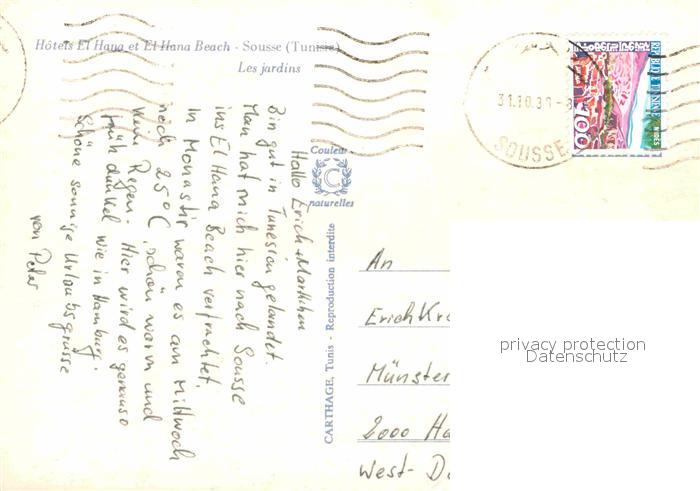 Hôtels El Hana et El Hana Beach - Sousse (Tunisie)
Les jardins
Hallo Erich +
Bin gut in Tunesien gelandet.
Man hat mich hier nach Sousse
ins El Hana Beach verfrachtet.
In Monastir waren es am Mittwoch
noch 25°C, schön warm und
kein Regen. Hier wird es genauso
früh dunkel wie in Hamburg.
Schöne sonnige Urlaubsgrüsse
von Peter
Couleurs
C
naturelles
CARTHAGE, Tunis - Reproduction interdite
31.10.
SOUSSE
REPUBLIQUE TUNISIENNE
100
An
Erich Kr
Münster
2000 Ha
West- D
privacy protection
Datenschutz